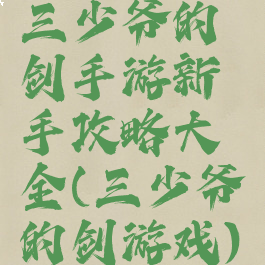 三少爷的
剑手游新
手攻略大
全(三少爷
的剑游戏)